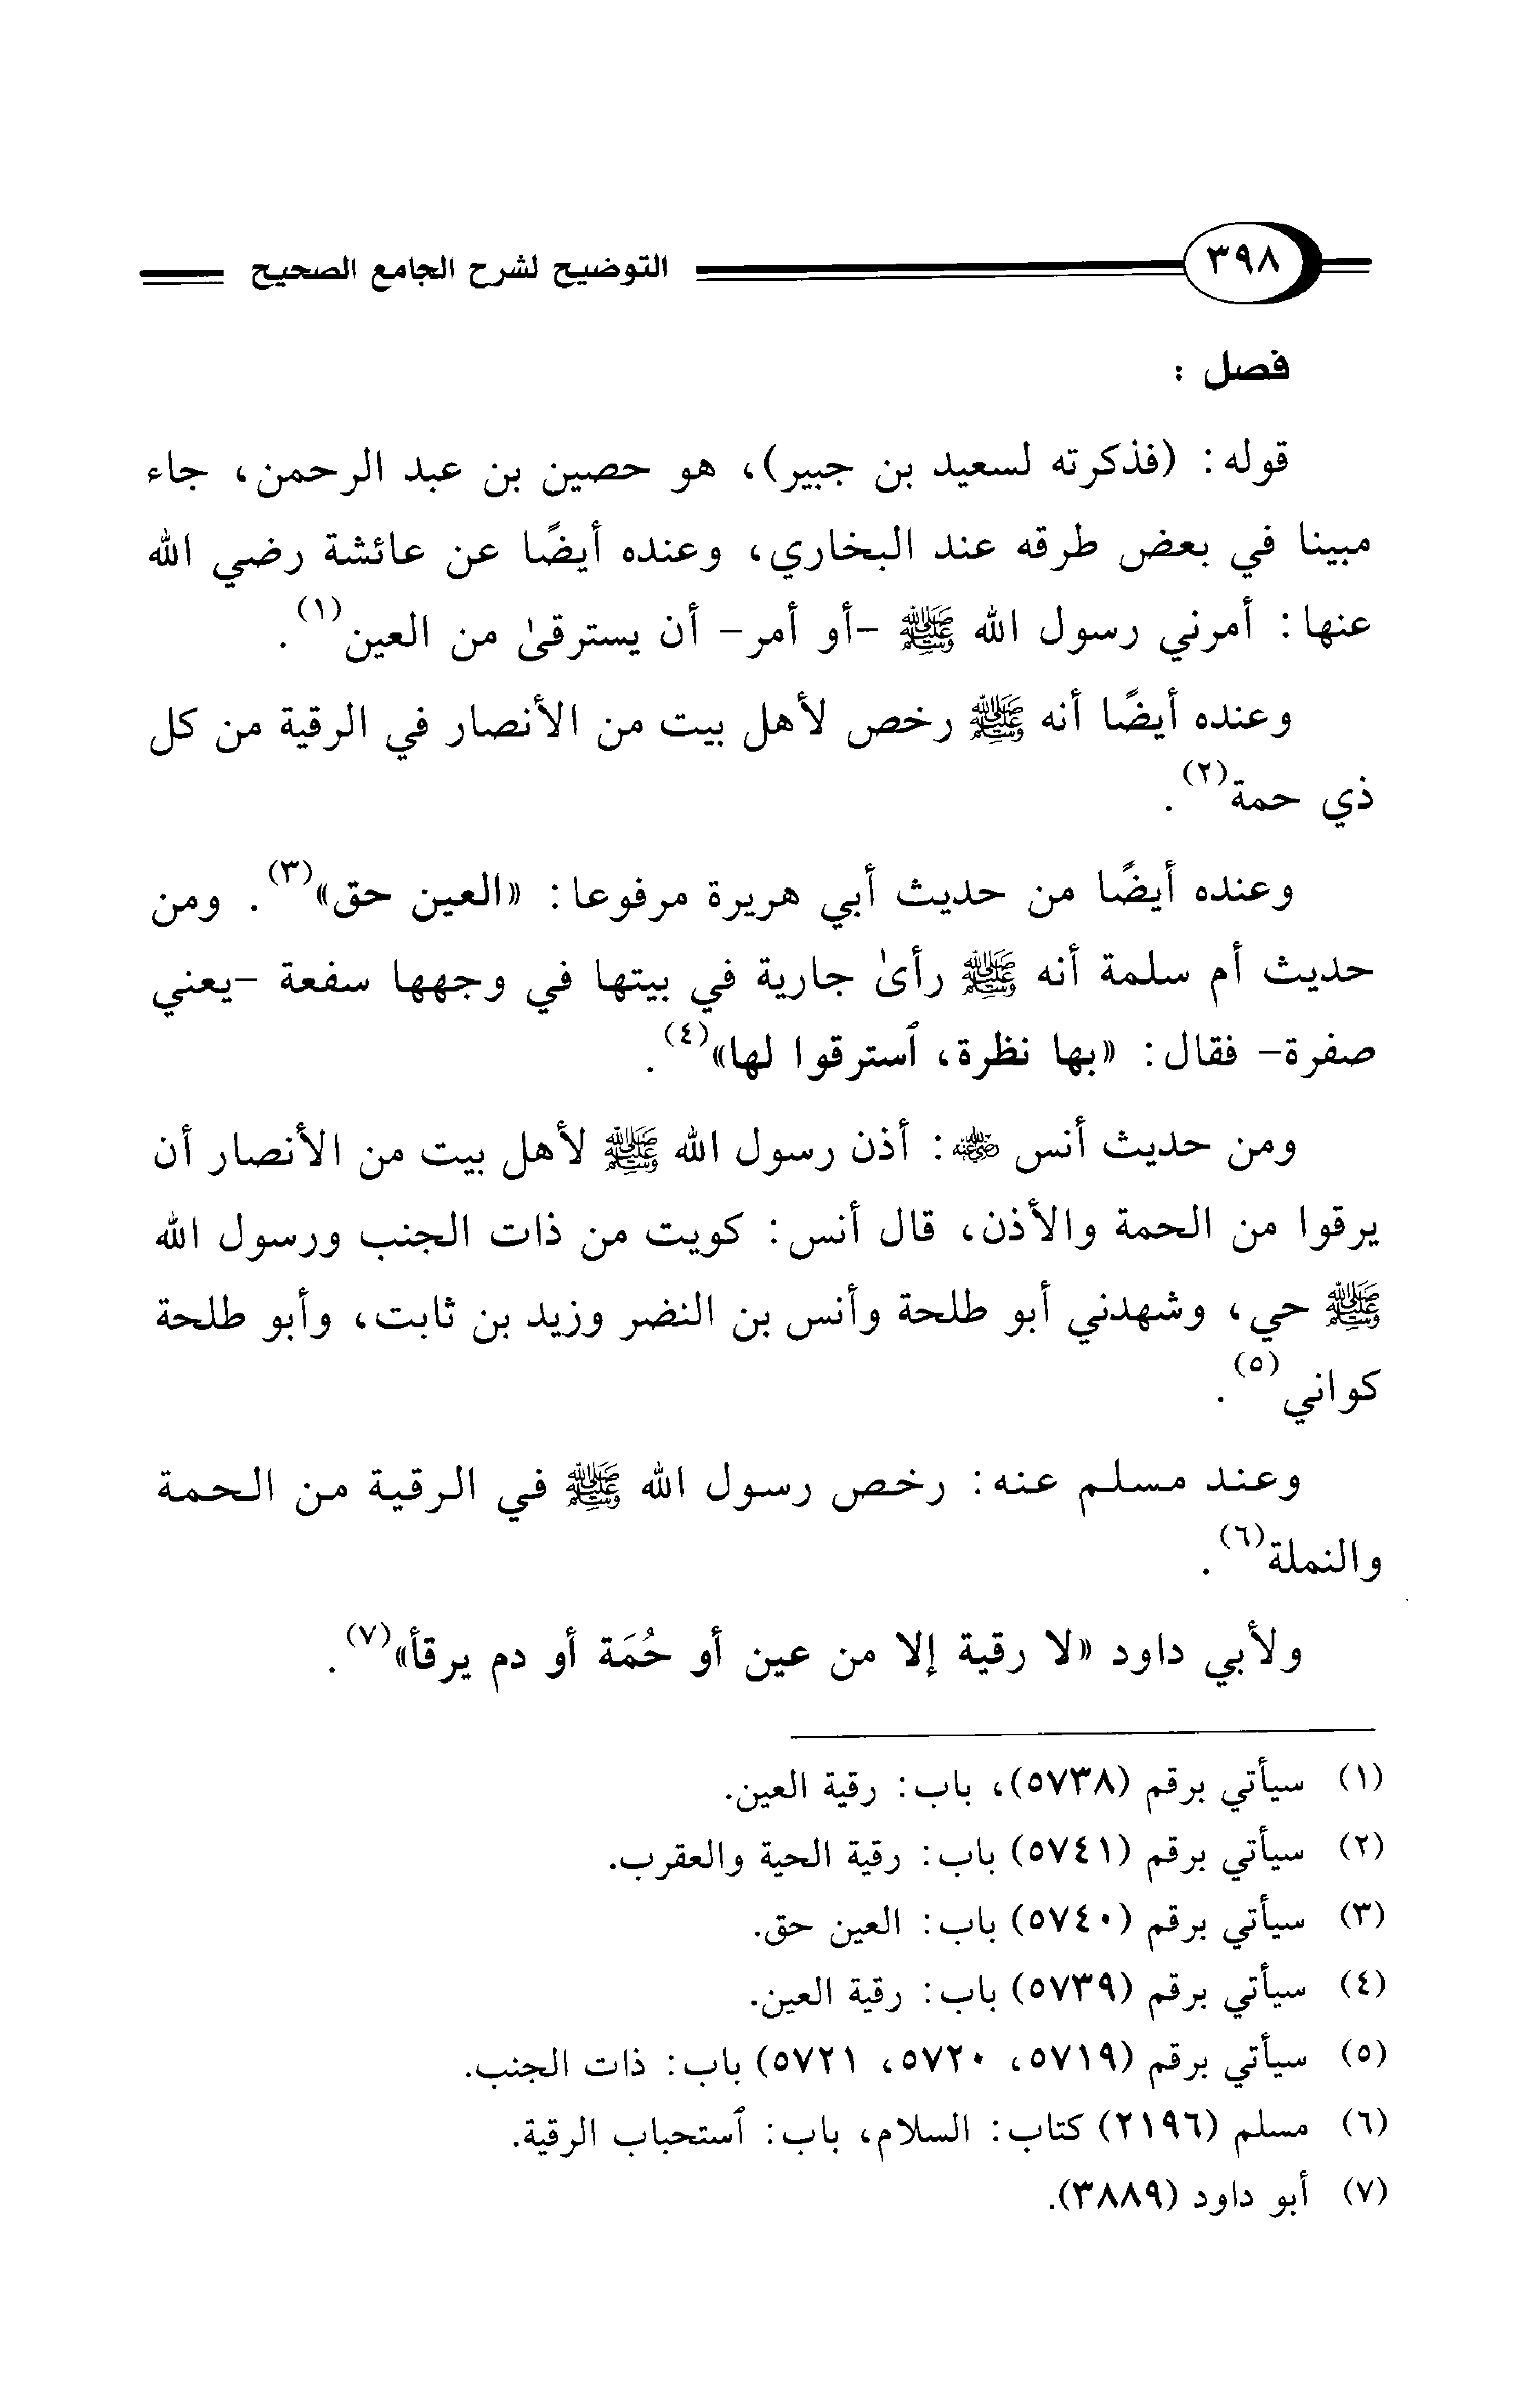 ٣٩٨ التوضيح لشرح الجامع الصحيح
فصل :
قوله: (فذكرته لسعيد بن جبير)، هو حصين بن عبد الرحمن، جاء
مبينا في بعض طرقه عند البخاري، وعنده أيضًا عن عائشة رضي الله
عنها: أمرني رسول الله ﷺ -أو أمر- أن يسترقىٰ من العين(١).
وعنده أيضًا أنه ﷺ رخص لأهل بيت من الأنصار في الرقية من كل
ذي حمة(٢).
وعنده أيضًا من حديث أبي هريرة مرفوعا: «العين حق»(٣). ومن
حديث أم سلمة أنه ﷺ رأىٰ جارية في بيتها في وجهها سفعة -يعني
صفرة- فقال: «بها نظرة، ٱسترقوا لها»(٤).
ومن حديث أنس رضي الله عنه: أذن رسول الله ﷺ لأهل بيت من الأنصار أن
يرقوا من الحمة والأذن، قال أنس: كويت من ذات الجنب ورسول الله
ﷺ حي، وشهدني أبو طلحة وأنس بن النضر وزيد بن ثابت، وأبو طلحة
كواني(٥).
وعند مسلم عنه: رخص رسول الله ﷺ في الرقية من الحمة
والنملة(٦).
ولأبي داود «لا رقية إلا من عين أو حُمَة أو دم يرقأ»(٧).
(١) سيأتي برقم (٥٧٣٨)، باب: رقية العين.
(٢) سيأتي برقم (٥٧٤١) باب: رقية الحية والعقرب.
(٣) سيأتي برقم (٥٧٤٠) باب: العين حق.
(٤) سيأتي برقم (٥٧٣٩) باب: رقية العين.
(٥) سيأتي برقم (٥٧١٩، ٥٧٢٠، ٥٧٢١) باب: ذات الجنب.
(٦) مسلم (٢١٩٦) كتاب: السلام، باب: ٱستحباب الرقية.
(٧) أبو داود (٣٨٨٩).